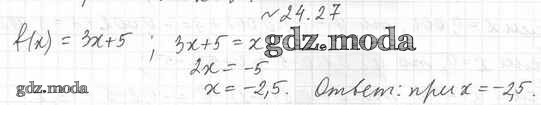 №24.27
f(x) = 3x+5 ; 3x+5 = x
gdz.moda
2x = -5
gdz.moda
x = -2,5. Ответ: при x = -2,5.